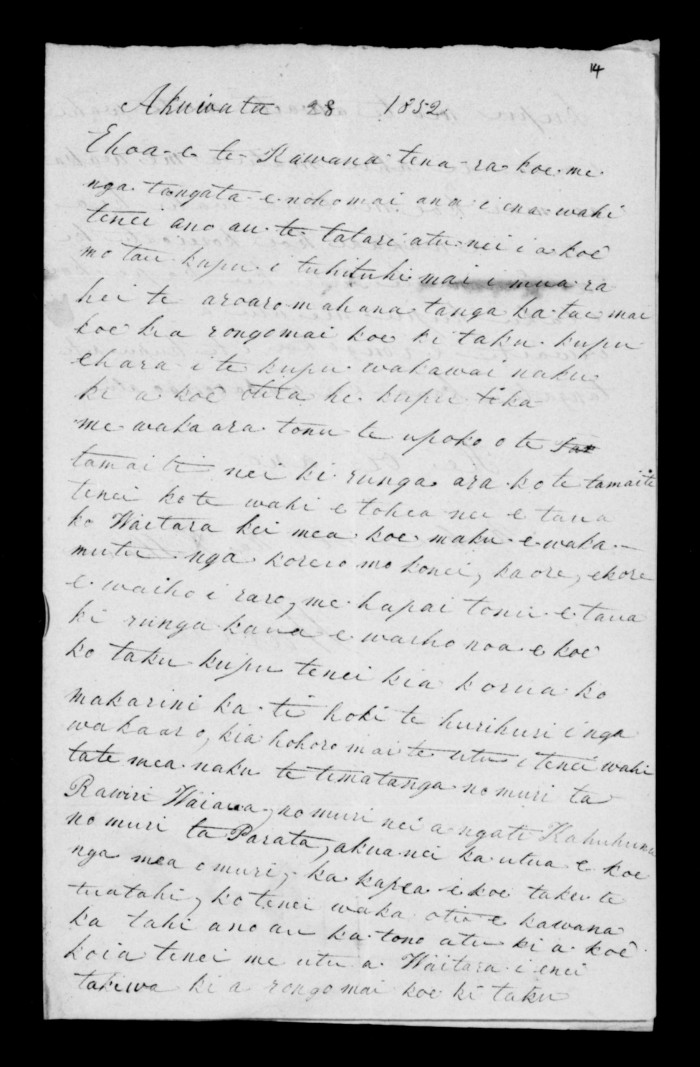 14
Akuwata 28 1852
Ehoa e te Kawana tena ra koe me
nga tangata e noho mai ana i ena wahi
tenei ano au te tatari atu nei i a koe
mo tau kupu i tuhituhi mai i mua ra
hei te aroaro mahana tanga ka tae mai
koe kia rongo mai koe ki taku kupu
ehara i te kupu wakawai naku
ki a koe otira he kupu tika
me wakaara tonu te upoko o te
tamaiti nei ki runga ara ko te tamaiti
tenei ko te wahi e tohea nei e taua
ko Waitara kei mea koe maku e waka-
mutu nga korero mo konei, kaore, ekore
e waiho i raro, me hapai tonu e taua
ki runga kaua e waiho noa e koe
ko taku kupu tenei kia korua ko
makarini ka ti hoki te hurihuri i nga
wakaaro, kia hohoro mai te utu i tenei wahi
tate mea naku te timatanga no muri ta
Rawiri Waiaua, no muri nei a ngati Kahuhunu
no muri ta Parata, akuanei ka utua e koe
nga mea o muri, ka kapea e koe taku te
tuatahi, ko tenei waka otia e kawana
ka tahi ano au ka tono atu ki a koe
koia tenei me utu a Waitara i enei
takiwa ki a rongo mai koe ki taku